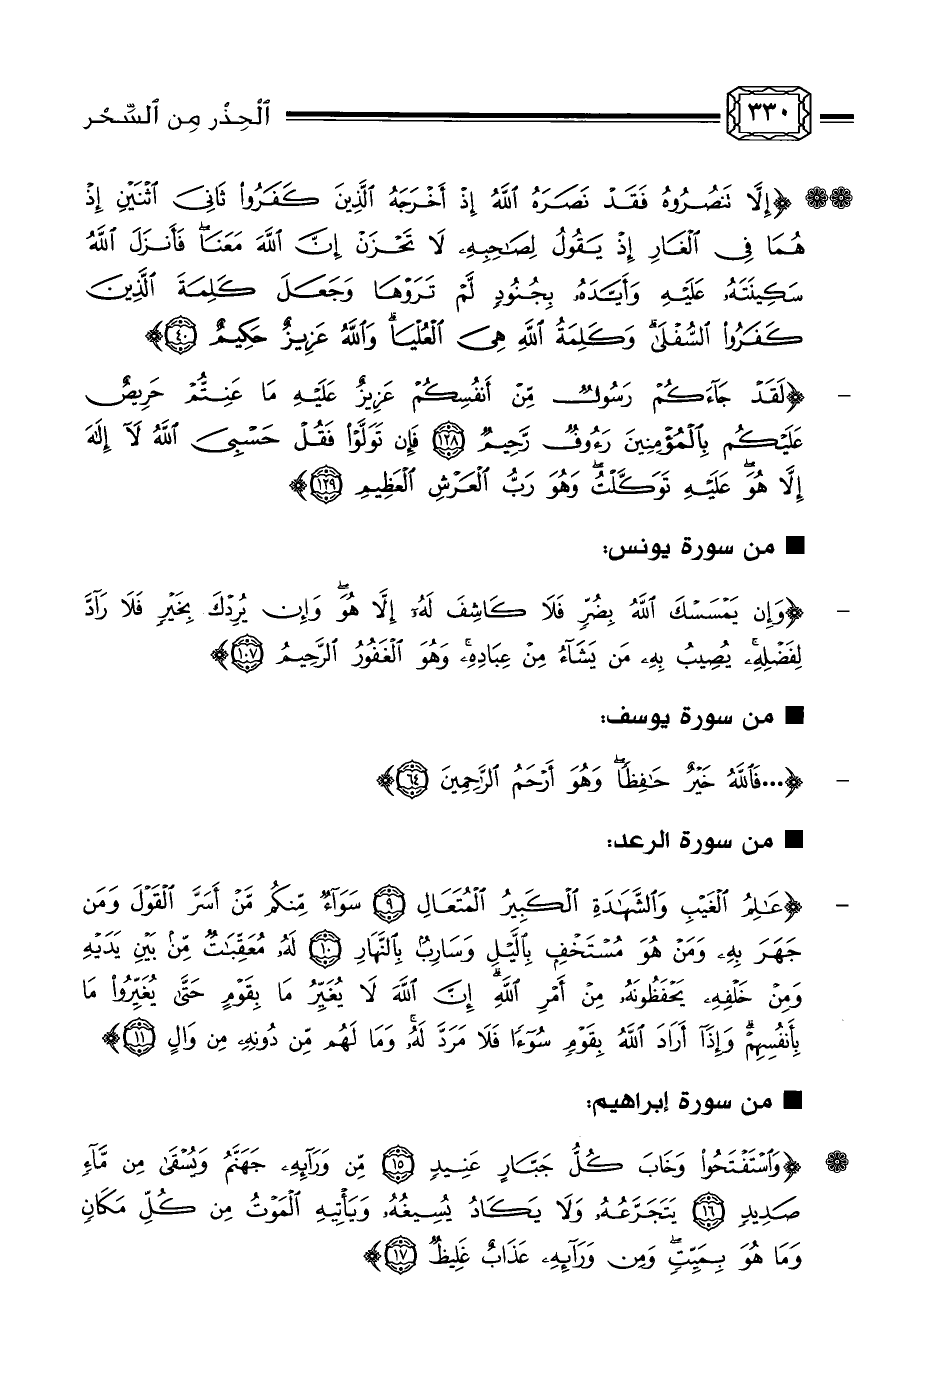 ٣٣٠ ٱلْحِذْر مِن ٱلسِّحْر
﴿إِلَّا تَنصُرُوهُ فَقَدْ نَصَرَهُ ٱللَّهُ إِذْ أَخْرَجَهُ ٱلَّذِينَ كَفَرُوا۟ ثَانِىَ ٱثْنَيْنِ إِذْ
هُمَا فِى ٱلْغَارِ إِذْ يَقُولُ لِصَٰحِبِهِۦ لَا تَحْزَنْ إِنَّ ٱللَّهَ مَعَنَا ۖ فَأَنزَلَ ٱللَّهُ
سَكِينَتَهُۥ عَلَيْهِ وَأَيَّدَهُۥ بِجُنُودٍ لَّمْ تَرَوْهَا وَجَعَلَ كَلِمَةَ ٱلَّذِينَ
كَفَرُوا۟ ٱلسُّفْلَىٰ ۗ وَكَلِمَةُ ٱللَّهِ هِىَ ٱلْعُلْيَا ۗ وَٱللَّهُ عَزِيزٌ حَكِيمٌ ٤٠﴾
- ﴿لَقَدْ جَآءَكُمْ رَسُولٌ مِّنْ أَنفُسِكُمْ عَزِيزٌ عَلَيْهِ مَا عَنِتُّمْ حَرِيصٌ
عَلَيْكُم بِٱلْمُؤْمِنِينَ رَءُوفٌ رَّحِيمٌ ١٢٨ فَإِن تَوَلَّوْا۟ فَقُلْ حَسْبِىَ ٱللَّهُ لَآ إِلَٰهَ
إِلَّا هُوَ ۖ عَلَيْهِ تَوَكَّلْتُ ۖ وَهُوَ رَبُّ ٱلْعَرْشِ ٱلْعَظِيمِ ١٢٩﴾
■ من سورة يونس:
- ﴿وَإِن يَمْسَسْكَ ٱللَّهُ بِضُرٍّ فَلَا كَاشِفَ لَهُۥٓ إِلَّا هُوَ ۖ وَإِن يُرِدْكَ بِخَيْرٍ فَلَا رَآدَّ
لِفَضْلِهِۦ ۚ يُصِيبُ بِهِۦ مَن يَشَآءُ مِنْ عِبَادِهِۦ ۚ وَهُوَ ٱلْغَفُورُ ٱلرَّحِيمُ ١٠٧﴾
■ من سورة يوسف:
- ﴿...فَٱللَّهُ خَيْرٌ حَٰفِظًا ۖ وَهُوَ أَرْحَمُ ٱلرَّٰحِمِينَ ٦٤﴾
■ من سورة الرعد:
- ﴿عَٰلِمُ ٱلْغَيْبِ وَٱلشَّهَٰدَةِ ٱلْكَبِيرُ ٱلْمُتَعَالِ ٩ سَوَآءٌ مِّنكُم مَّنْ أَسَرَّ ٱلْقَوْلَ وَمَن
جَهَرَ بِهِۦ وَمَنْ هُوَ مُسْتَخْفٍۭ بِٱلَّيْلِ وَسَارِبٌۢ بِٱلنَّهَارِ ١٠ لَهُۥ مُعَقِّبَٰتٌ مِّنۢ بَيْنِ يَدَيْهِ
وَمِنْ خَلْفِهِۦ يَحْفَظُونَهُۥ مِنْ أَمْرِ ٱللَّهِ ۗ إِنَّ ٱللَّهَ لَا يُغَيِّرُ مَا بِقَوْمٍ حَتَّىٰ يُغَيِّرُوا۟ مَا
بِأَنفُسِهِمْ ۗ وَإِذَآ أَرَادَ ٱللَّهُ بِقَوْمٍ سُوٓءًا فَلَا مَرَدَّ لَهُۥ ۚ وَمَا لَهُم مِّن دُونِهِۦ مِن وَالٍ ١١﴾
■ من سورة إبراهيم:
﴿وَٱسْتَفْتَحُوا۟ وَخَابَ كُلُّ جَبَّارٍ عَنِيدٍ ١٥ مِّن وَرَآئِهِۦ جَهَنَّمُ وَيُسْقَىٰ مِن مَّآءٍ
صَدِيدٍ ١٦ يَتَجَرَّعُهُۥ وَلَا يَكَادُ يُسِيغُهُۥ وَيَأْتِيهِ ٱلْمَوْتُ مِن كُلِّ مَكَانٍ
وَمَا هُوَ بِمَيِّتٍ ۖ وَمِن وَرَآئِهِۦ عَذَابٌ غَلِيظٌ ١٧﴾